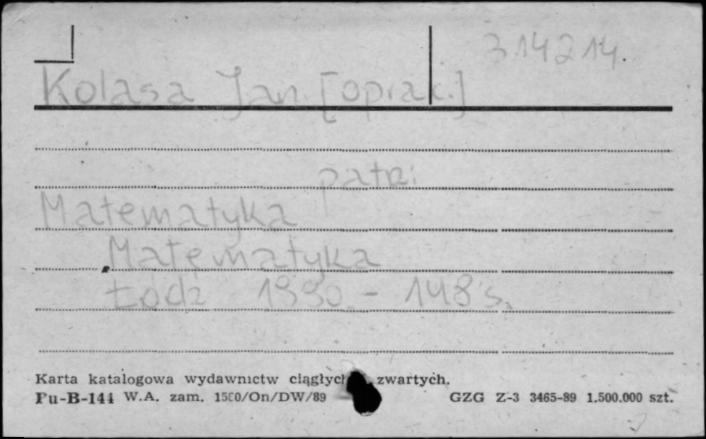 314214.
Kolasa Jan [oprac.]
patrz:
Matematyka
Matematyka
Łódź 1990 - 148 s.
Karta katalogowa wydawnictw ciągłych zwartych.
Pu-B-144 W.A. zam. 1500/On/DW/89 GZG Z-3 3465-89 1.500.000 szt.